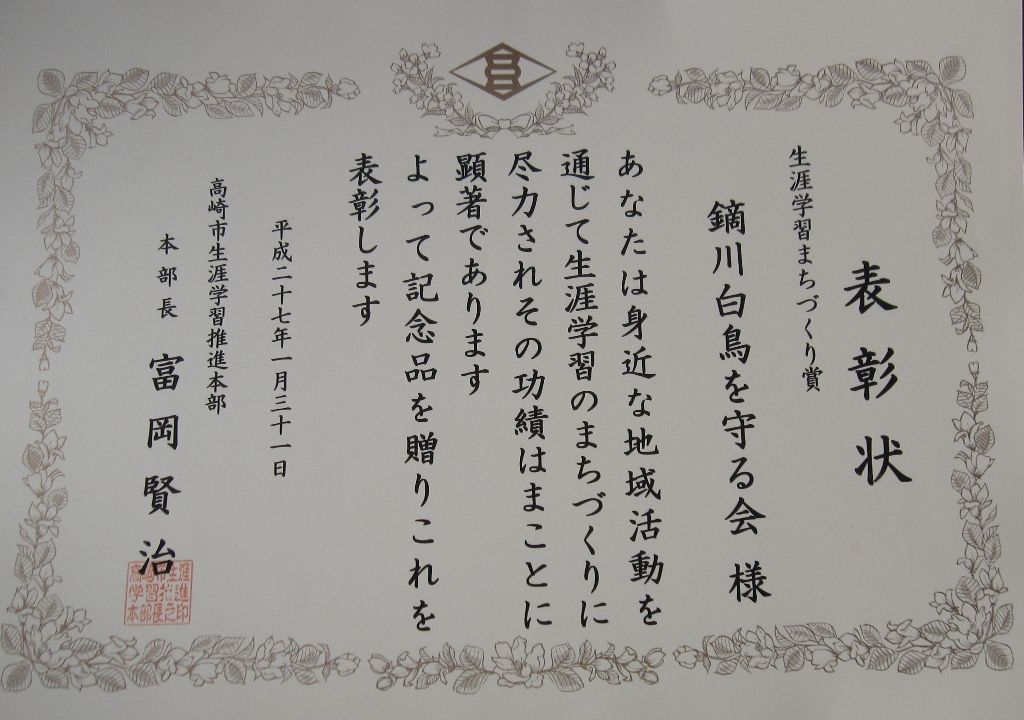 表彰状
生涯学習まちづくり賞
鏑川白鳥を守る会 様
あなたは身近な地域活動を
通じて生涯学習のまちづくりに
尽力されその功績はまことに
顕著であります
よって記念品を贈りこれを
表彰します
平成二十七年一月三十一日
高崎市生涯学習推進本部
本部長 富岡賢治